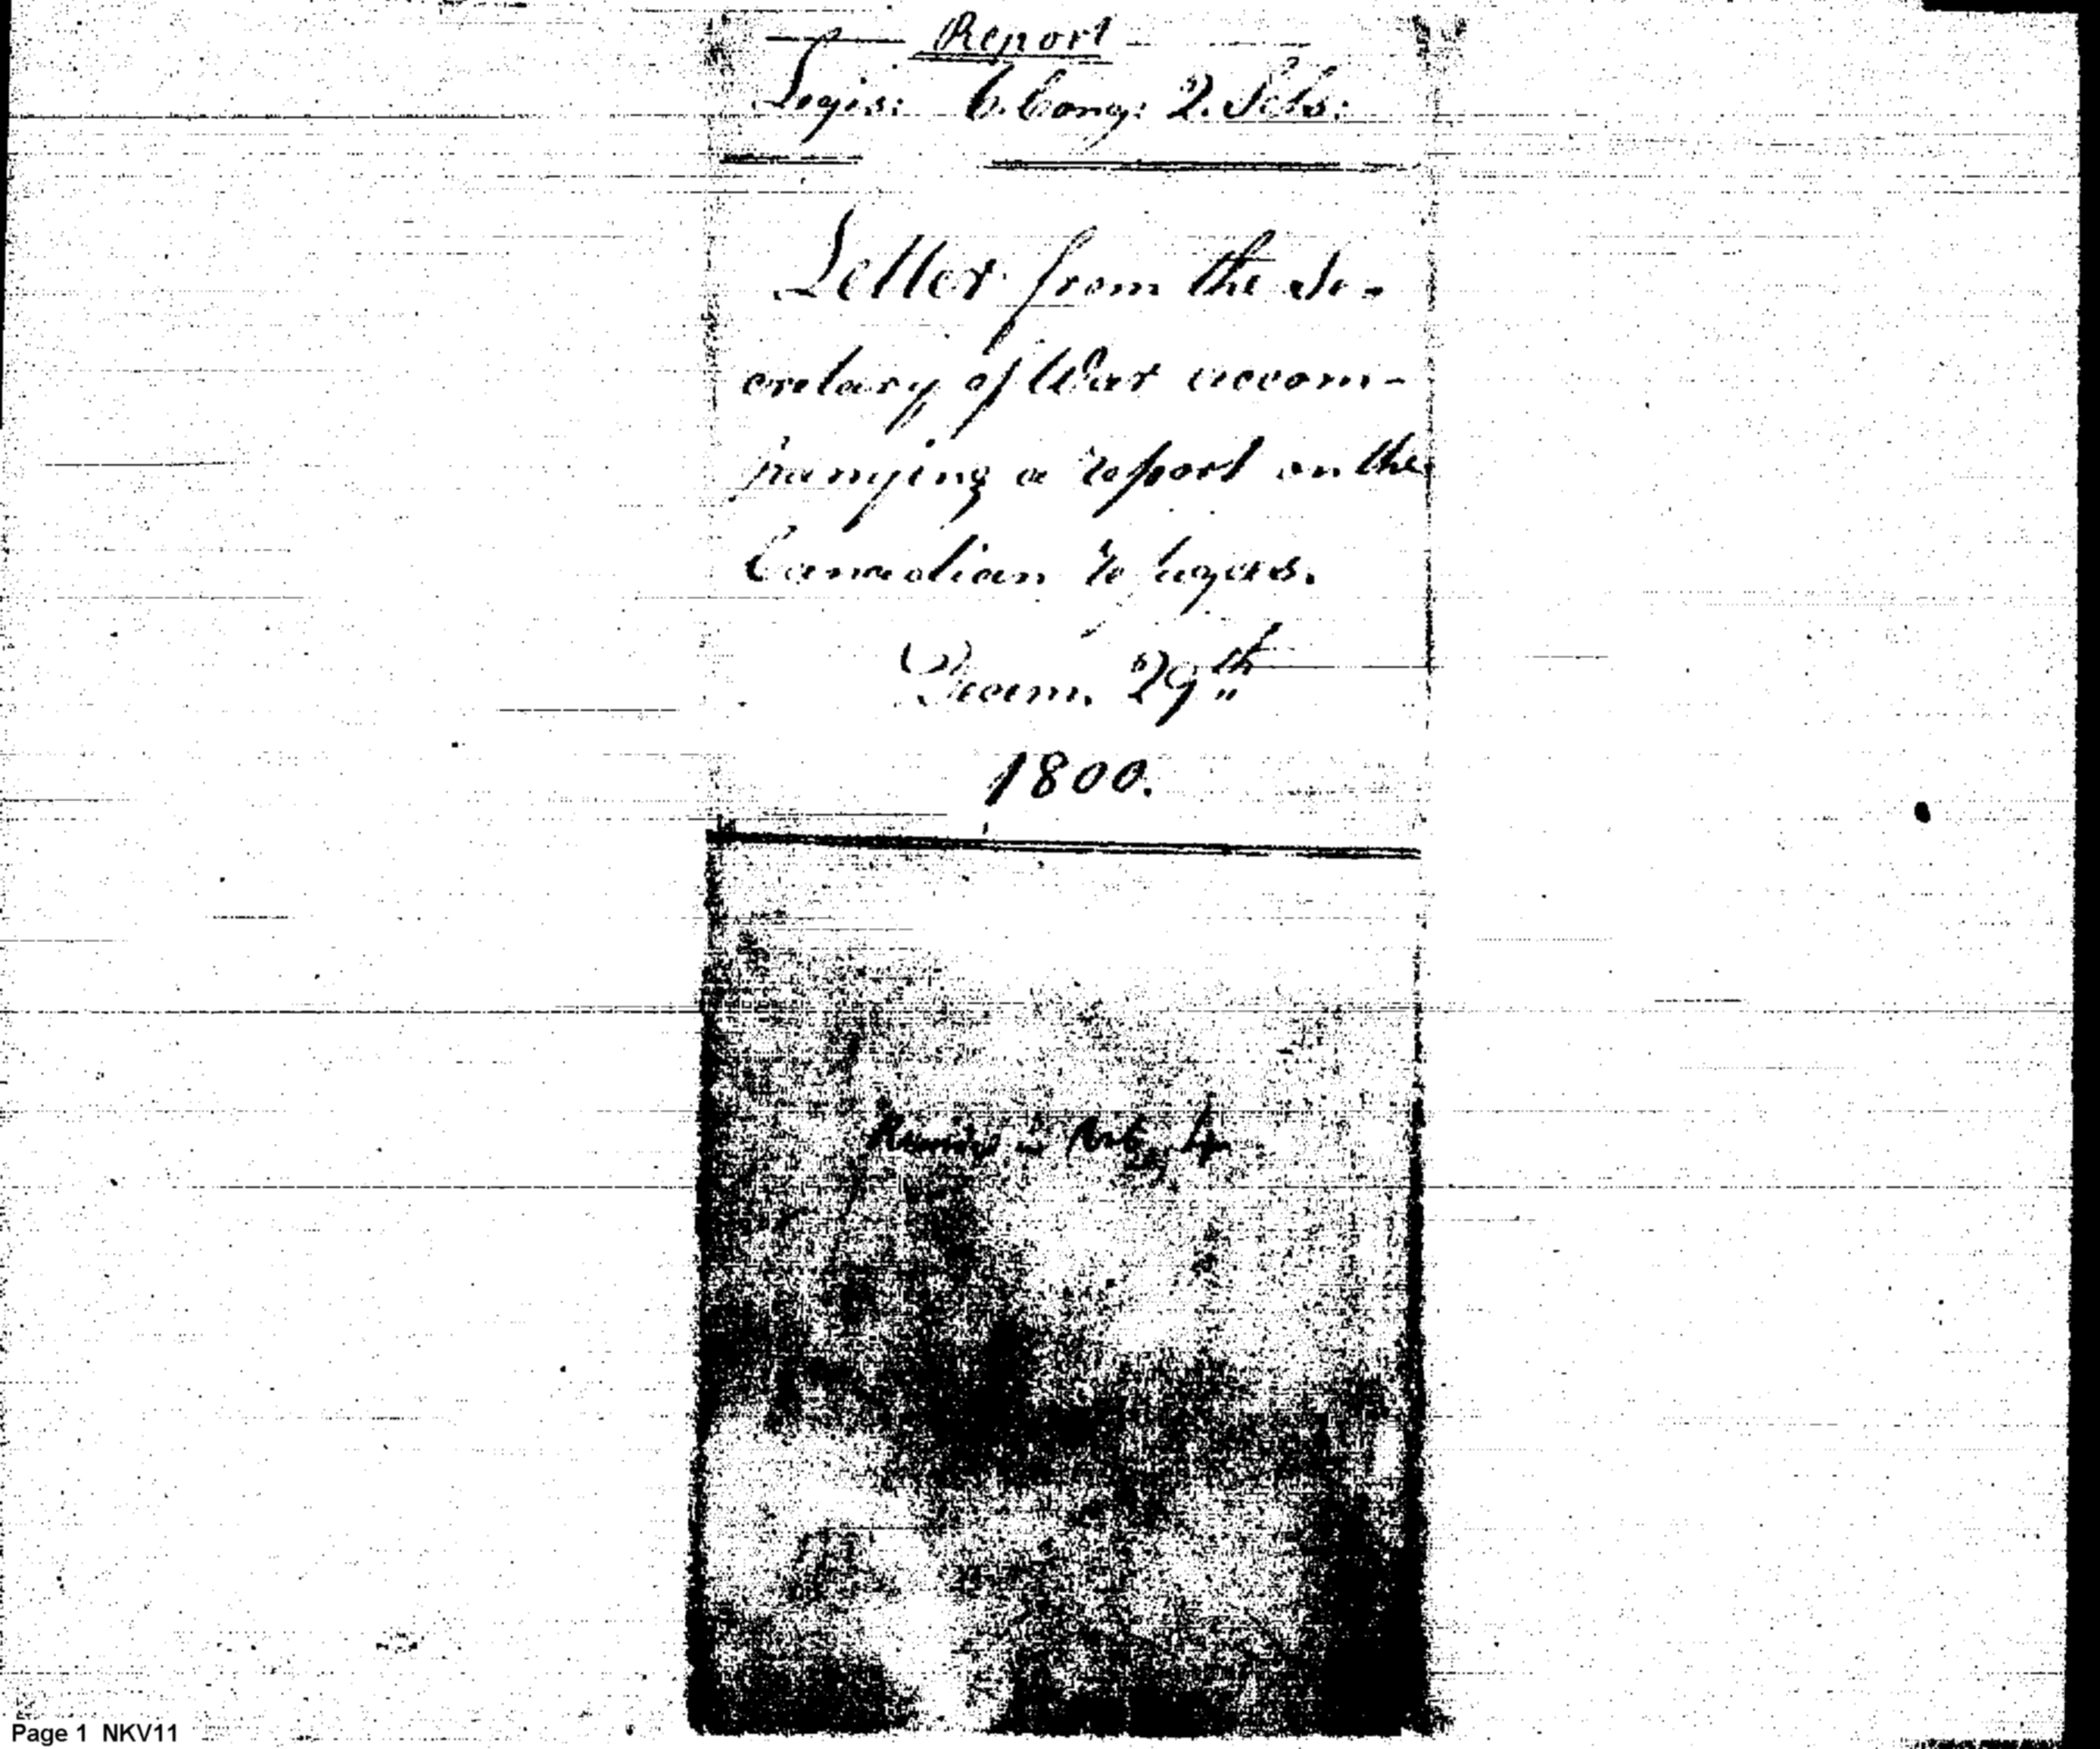 Report
Legis: 6. Cong: 2. Sess:
Letter from the Se-
cretary of War accom-
panying a report on the
Canadian refugees.
Decem. 29th
1800.
in
Page 1 NKV11